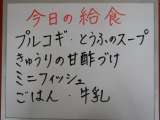 今日の給食
プルコギ・とうふのスープ
きゅうりの甘酢づけ
ミニフィッシュ
ごはん・牛乳